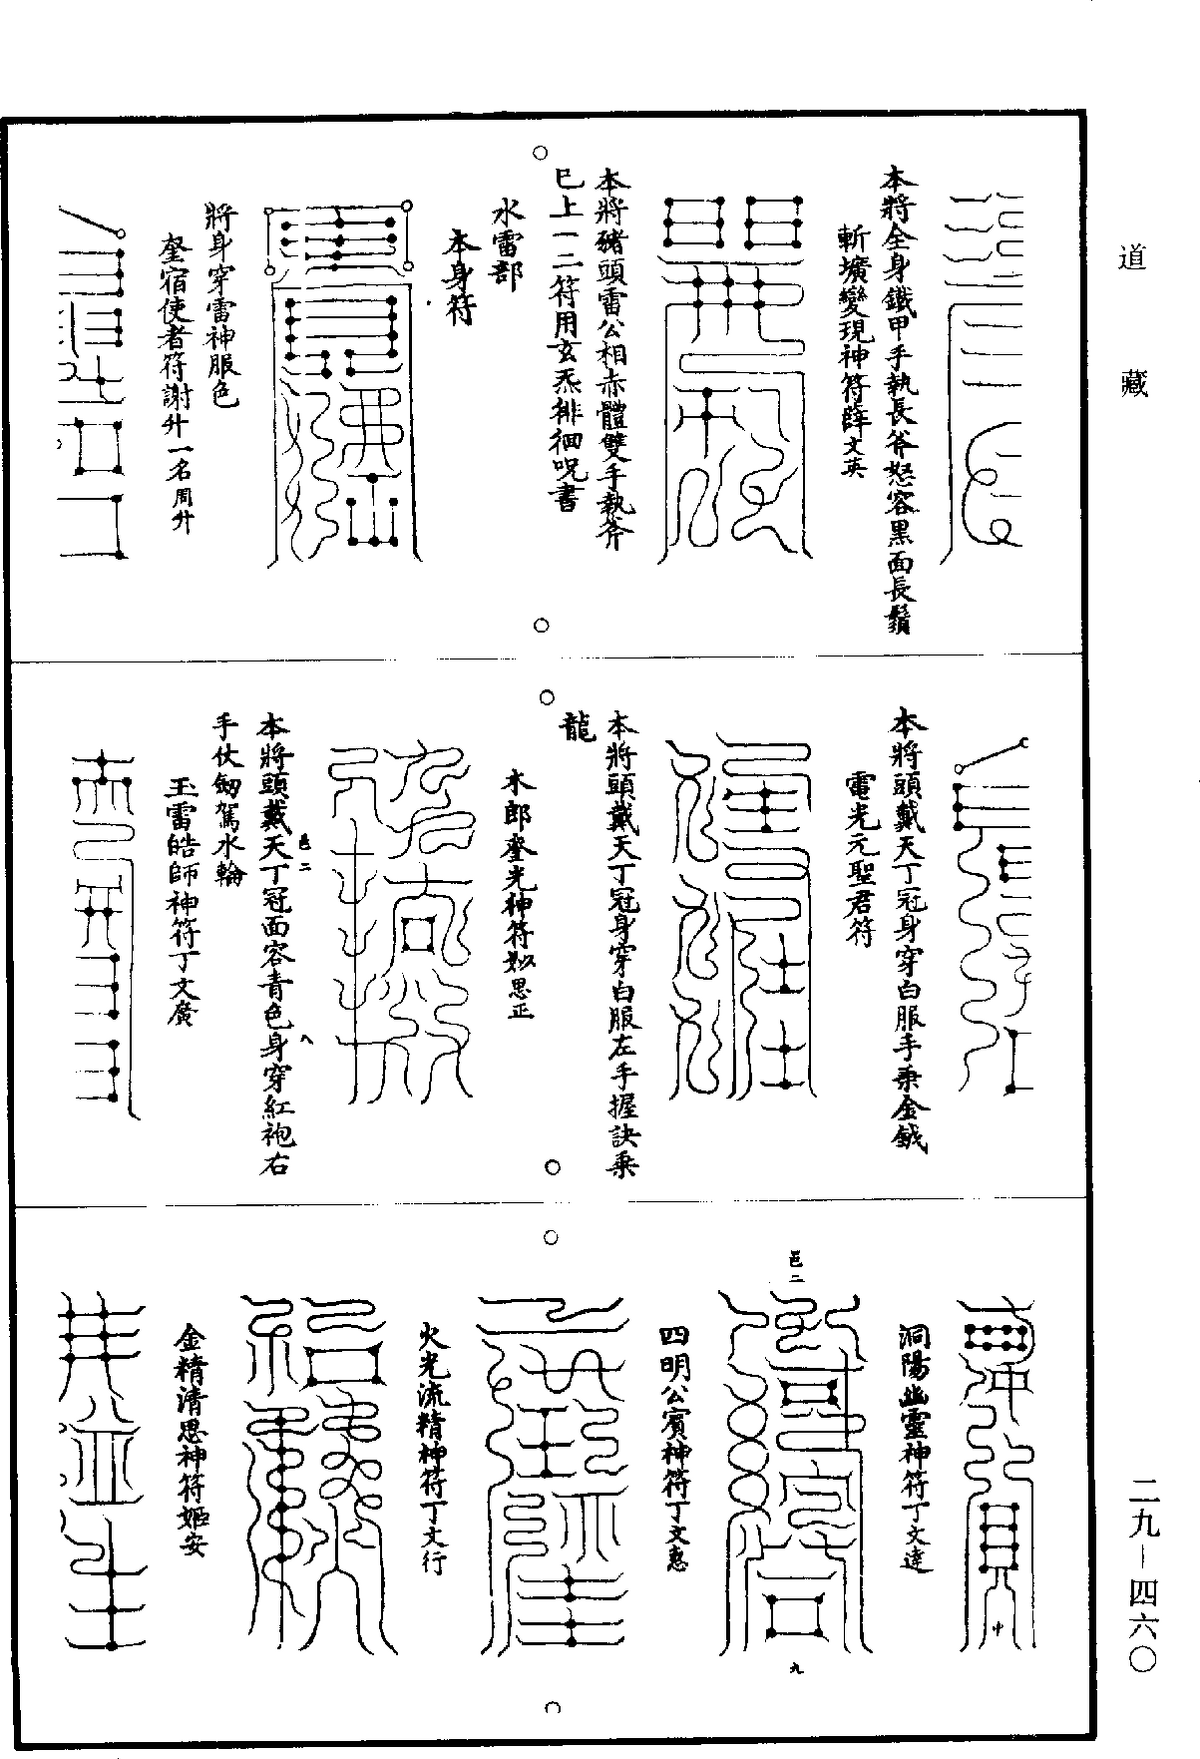 道藏
本將全身鐵甲手執長斧怒容黑面長鬚
斬壙變現神符薛文英
本將豬頭雷公相赤體雙手執斧
已上一二符用玄炁徘徊呪書
水雷部
本身符
將身穿雷神服色
奎宿使者符謝升一名周升
本將頭戴天丁冠身穿白服手秉金鉞
電光元聖君符
本將頭戴天丁冠身穿白服左手握訣乘
龍
木郎奎光神符姒思正
本將頭戴天丁冠面容青色身穿紅袍右
手仗劒駕水輪
玉雷皓師神符丁文廣
洞陽幽靈神符丁文達
四明公賓神符丁文惠
火光流精神符丁文行
金精清思神符姬安
二九－四六〇